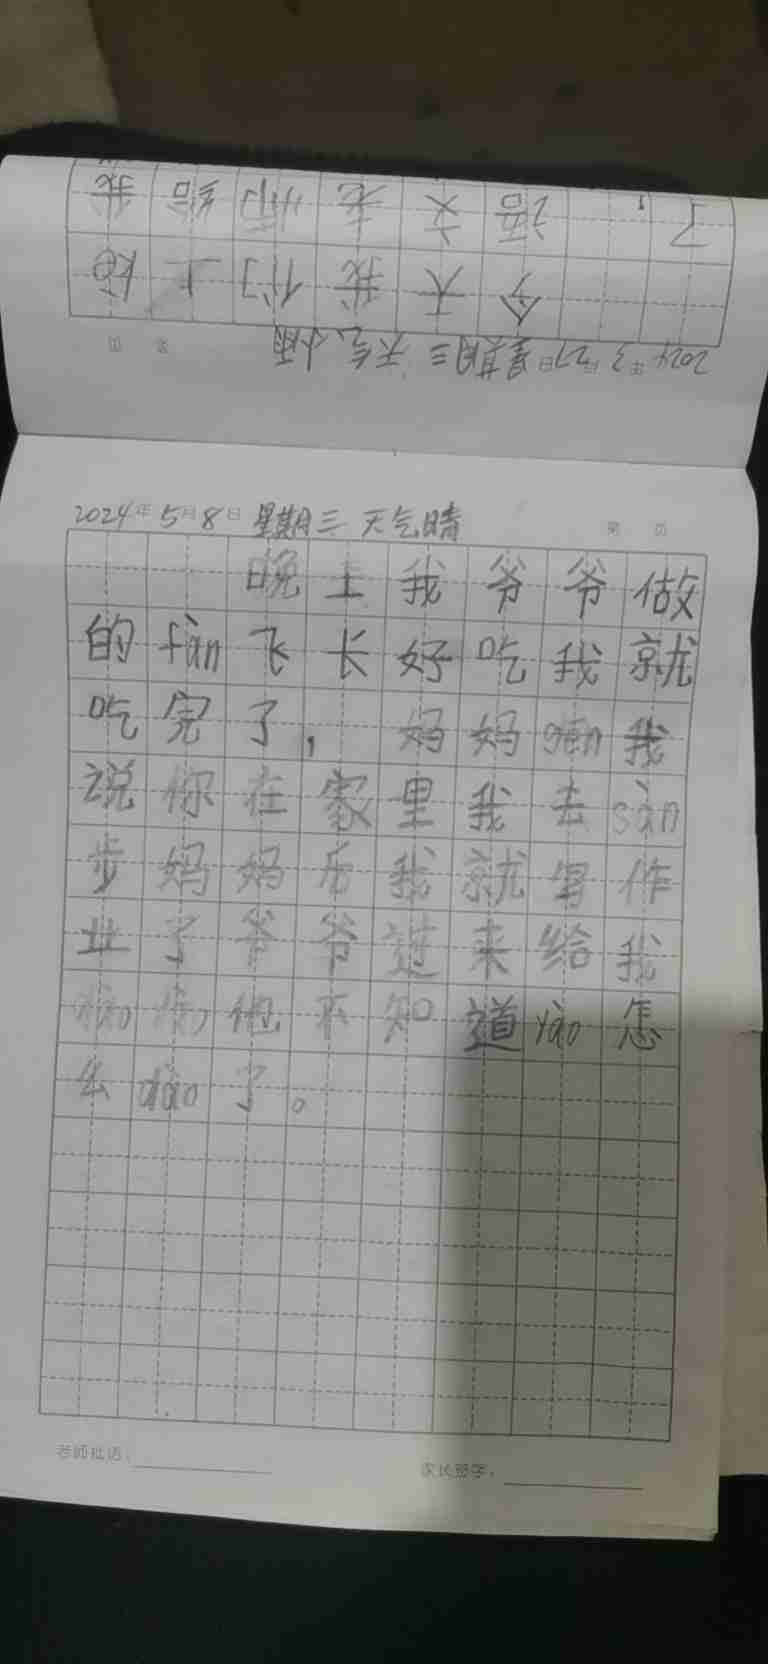 我给们老文语 了！
给上们我天今
2024年3月27日星期三 天气小雨 第 页
2024年5月8日 星期三 天气晴 第 页
晚上我爷爷做
的fàn飞长好吃我就
吃完了，妈妈gēn我
说你在家里我去sàn
步妈妈后我就写作
业了爷爷过来给我
他不知道yào怎
么dào了。
老师批语：
家长签字：